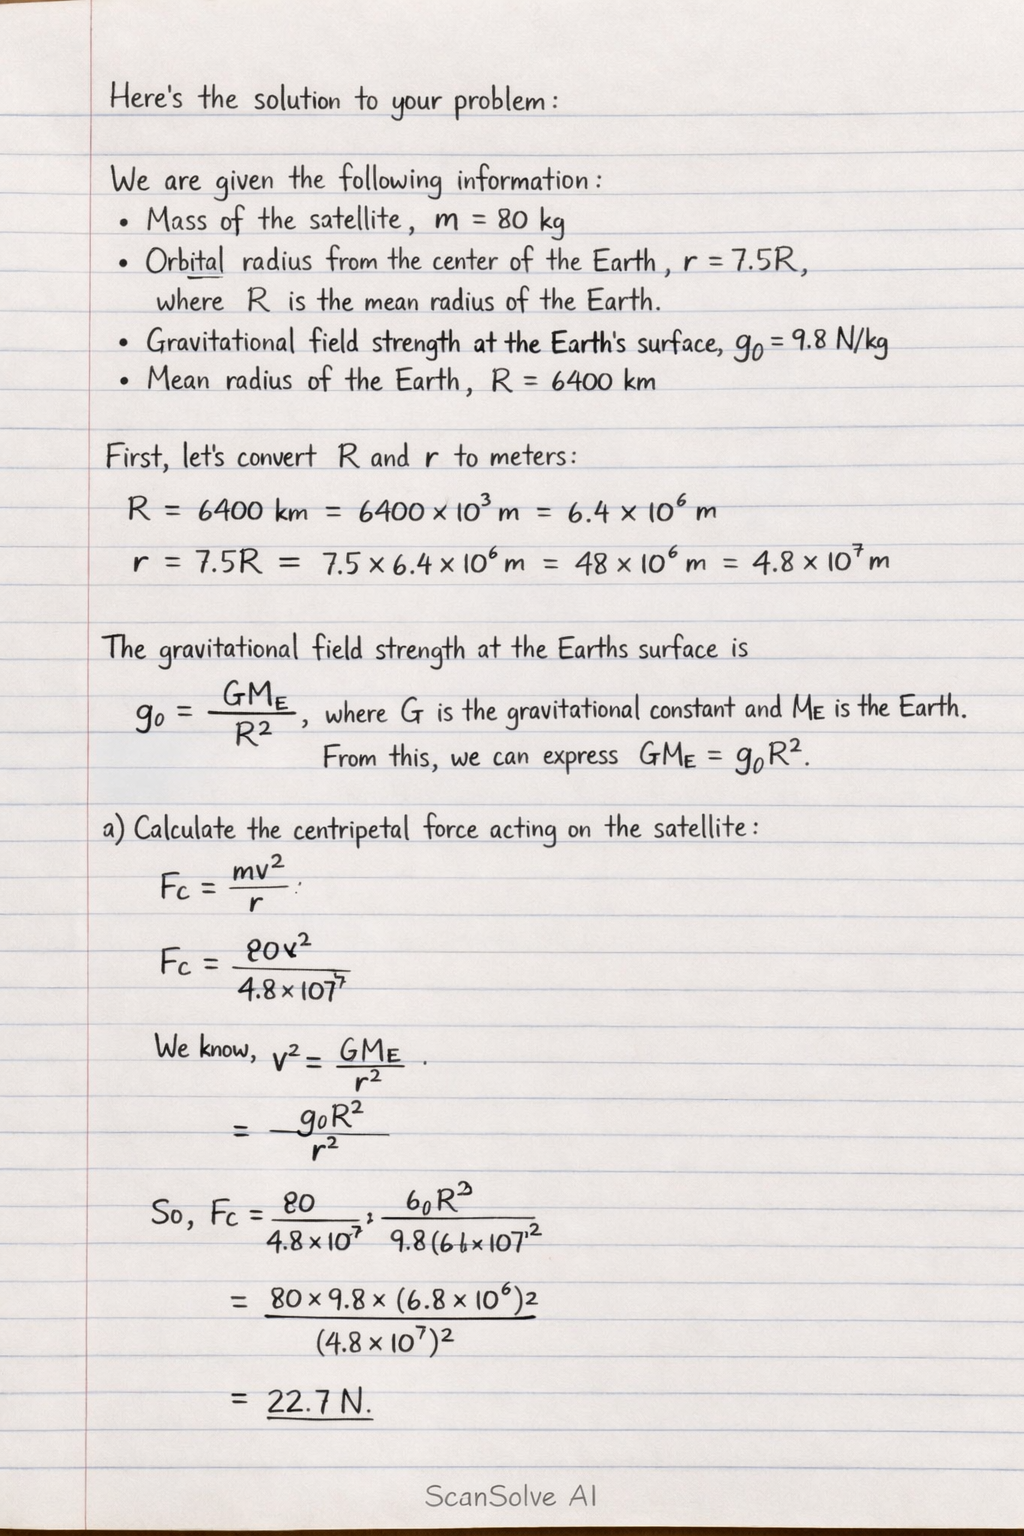 Here's the solution to your problem:
We are given the following information:
• Mass of the satellite, m = 80 kg
• Orbital radius from the center of the Earth, r = 7.5R,
where R is the mean radius of the Earth.
• Gravitational field strength at the Earth's surface, g₀ = 9.8 N/kg
• Mean radius of the Earth, R = 6400 km
First, let's convert R and r to meters:
R = 6400 km = 6400 × 10³ m = 6.4 × 10⁶ m
r = 7.5R = 7.5 × 6.4 × 10⁶ m = 48 × 10⁶ m = 4.8 × 10⁷ m
The gravitational field strength at the Earths surface is
g₀ = GM_E / R², where G is the gravitational constant and M_E is the Earth.
From this, we can express GM_E = g₀R².
a) Calculate the centripetal force acting on the satellite:
Fc = mv² / r
Fc = 80v² / 4.8 × 10⁷
We know, v² = GM_E / r².
= g₀R² / r²
So, Fc = 80 / 4.8 × 10⁷, 6₀R³ / 9.8
= 80 × 9.8 × (6.8 × 10⁶)2 / (4.8 × 10⁷)²
= 22.7 N.
ScanSolve AI